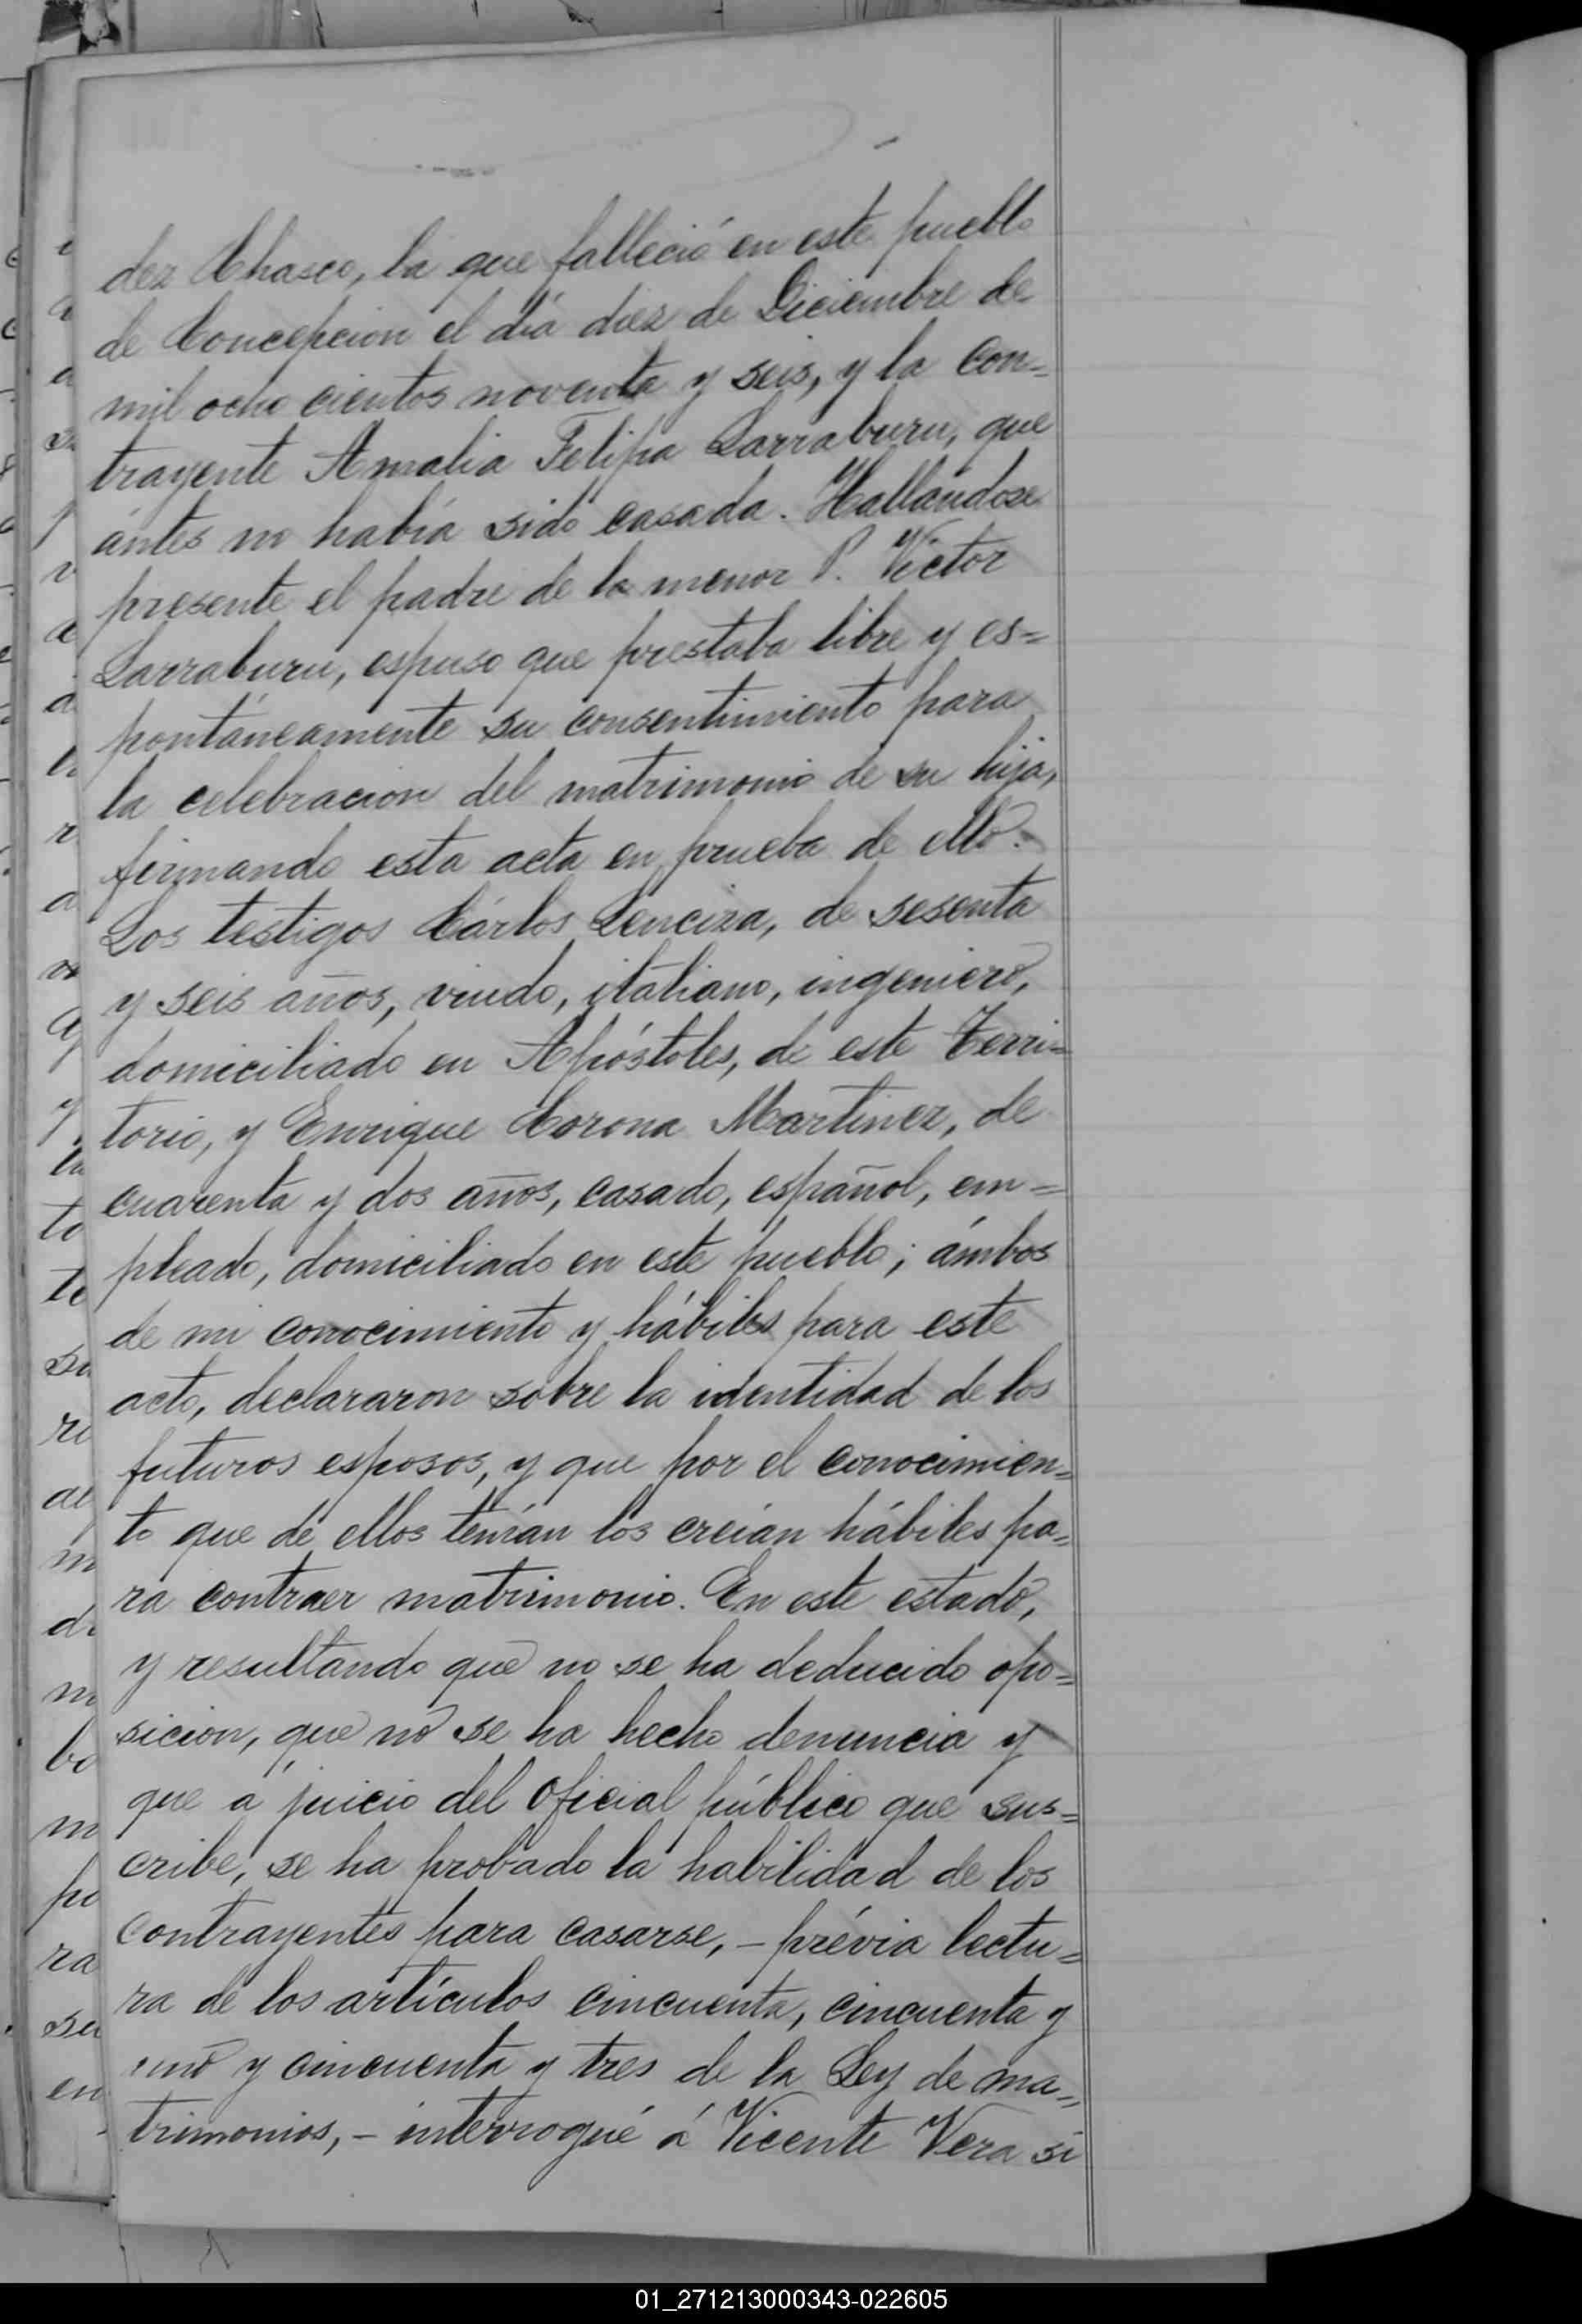 dez Chasco, la que falleció en este pueblo
de Concepcion el día diez de Diciembre de
mil ocho cientos noventa y seis, y la con=
trayente Amalia Felipa Larraburu, que
ántes no había sido casada. Hallandose
presente el padre de la menor P. Victor
Larraburu, espuso que prestaba libre y es=
pontáneamente su consentimiento para
la celebracion del matrimonio de su hija,
firmando esta acta en prueba de ello.
Los testigos Cárlos Lenciza, de sesenta
y seis años, viudo, italiano, ingeniero,
domiciliado en Apóstoles, de este Terri=
torio, y Enrique Corona Martinez, de
cuarenta y dos años, casado, español, em=
pleado, domiciliado en este pueblo; ámbos
de mi conocimiento y hábiles para este
acto, declararon sobre la identidad de los
futuros esposos, y que por el conocimien=
to que de ellos tenían los creían hábiles pa=
ra contraer matrimonio. En este estado,
y resultando que no se ha deducido opo=
sicion, que no se ha hecho denuncia y
que á juicio del Oficial público que sus=
cribe, se ha probado la habilidad de los
contrayentes para casarse, – prévia lectu=
ra de los artículos cincuenta, cincuenta y
uno y cincuenta y tres de la Ley de ma=
trimonios, – interrogué á Vicente Vera si
01_271213000343-022605